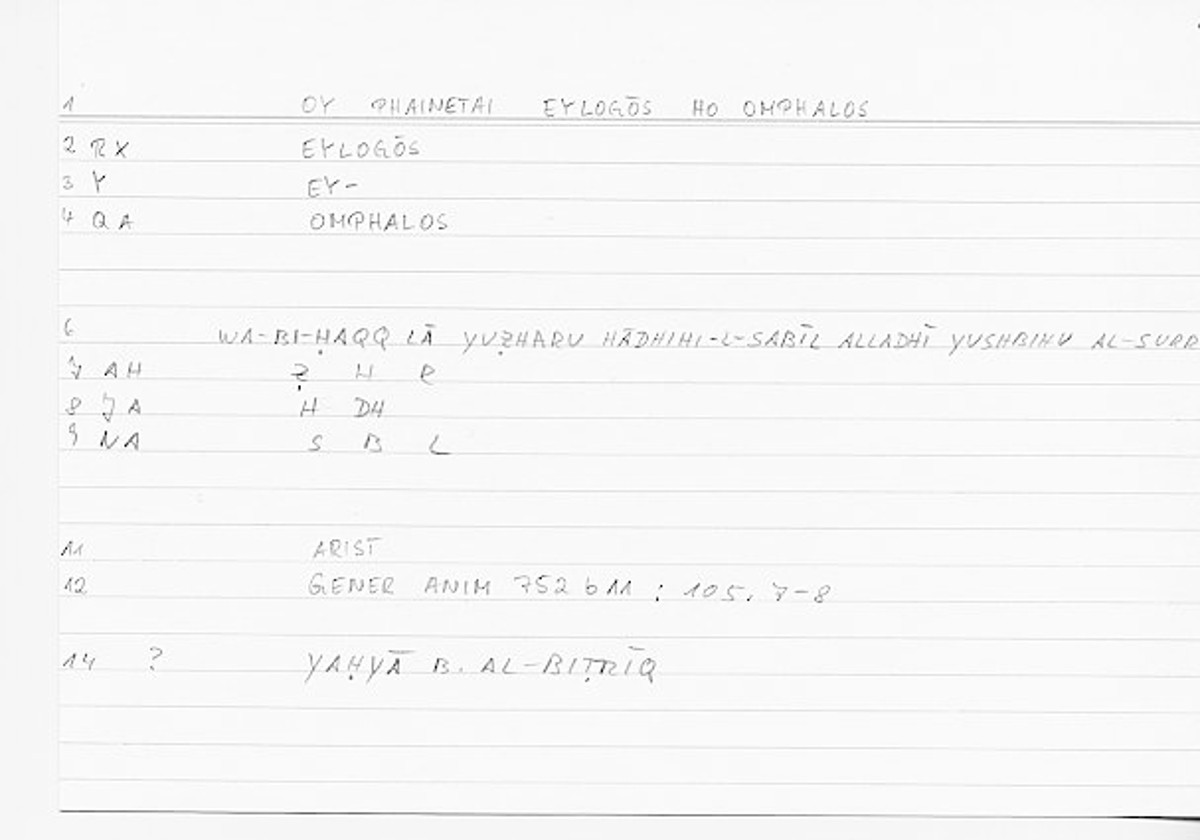 1 OY PHAINETAI EYLOGŌS HO OMPHALOS
2 RX EYLOGŌS
3 Y EY-
4 QA OMPHALOS
6 WA-BI-ḤAQQ LĀ YUẒHARU HĀDHIHI-L-SABĪL ALLADHĪ YUSHBIHU AL-SURR
7 AH Ẓ H R
8 JA H DH
9 NA S B L
11 ARIST
12 GENER ANIM 752 b 11 ; 105. 7-8
14 ? YAḤYĀ B. AL-BIṬRĪQ